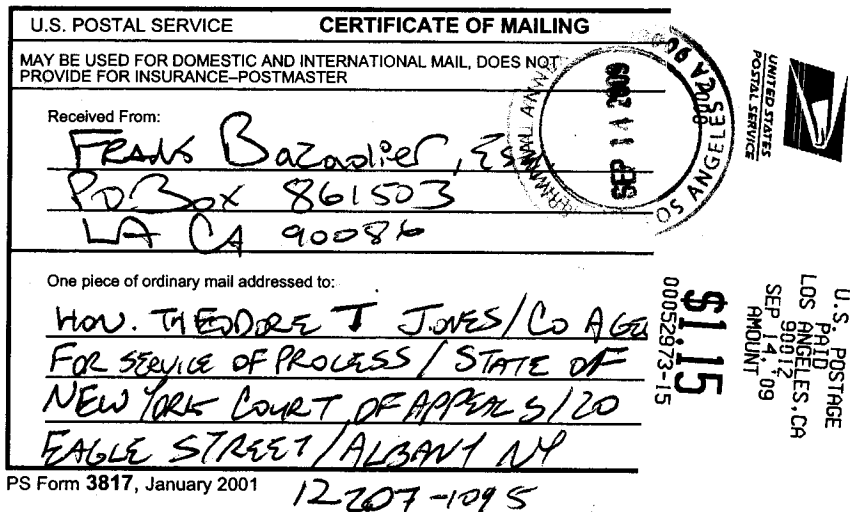 U.S. POSTAL SERVICE CERTIFICATE OF MAILING
MAY BE USED FOR DOMESTIC AND INTERNATIONAL MAIL, DOES NOT
PROVIDE FOR INSURANCE–POSTMASTER
Received From:
P.O. Box 861503
LA CA 90086
One piece of ordinary mail addressed to:
HON. THEODORE T JONES/CO AGE
FOR SERVICE OF PROCESS / STATE OF
NEW YORK COURT OF APPEALS/20
EAGLE STREET/ALBANY NY
12207-1095
PS Form 3817, January 2001
SEP 14 2009
LOS ANGELES CA 900
UNITED STATES
POSTAL SERVICE
U.S. POSTAGE
PAID
LOS ANGELES, CA
90012
SEP 14, '09
AMOUNT
$1.15
00052973-15